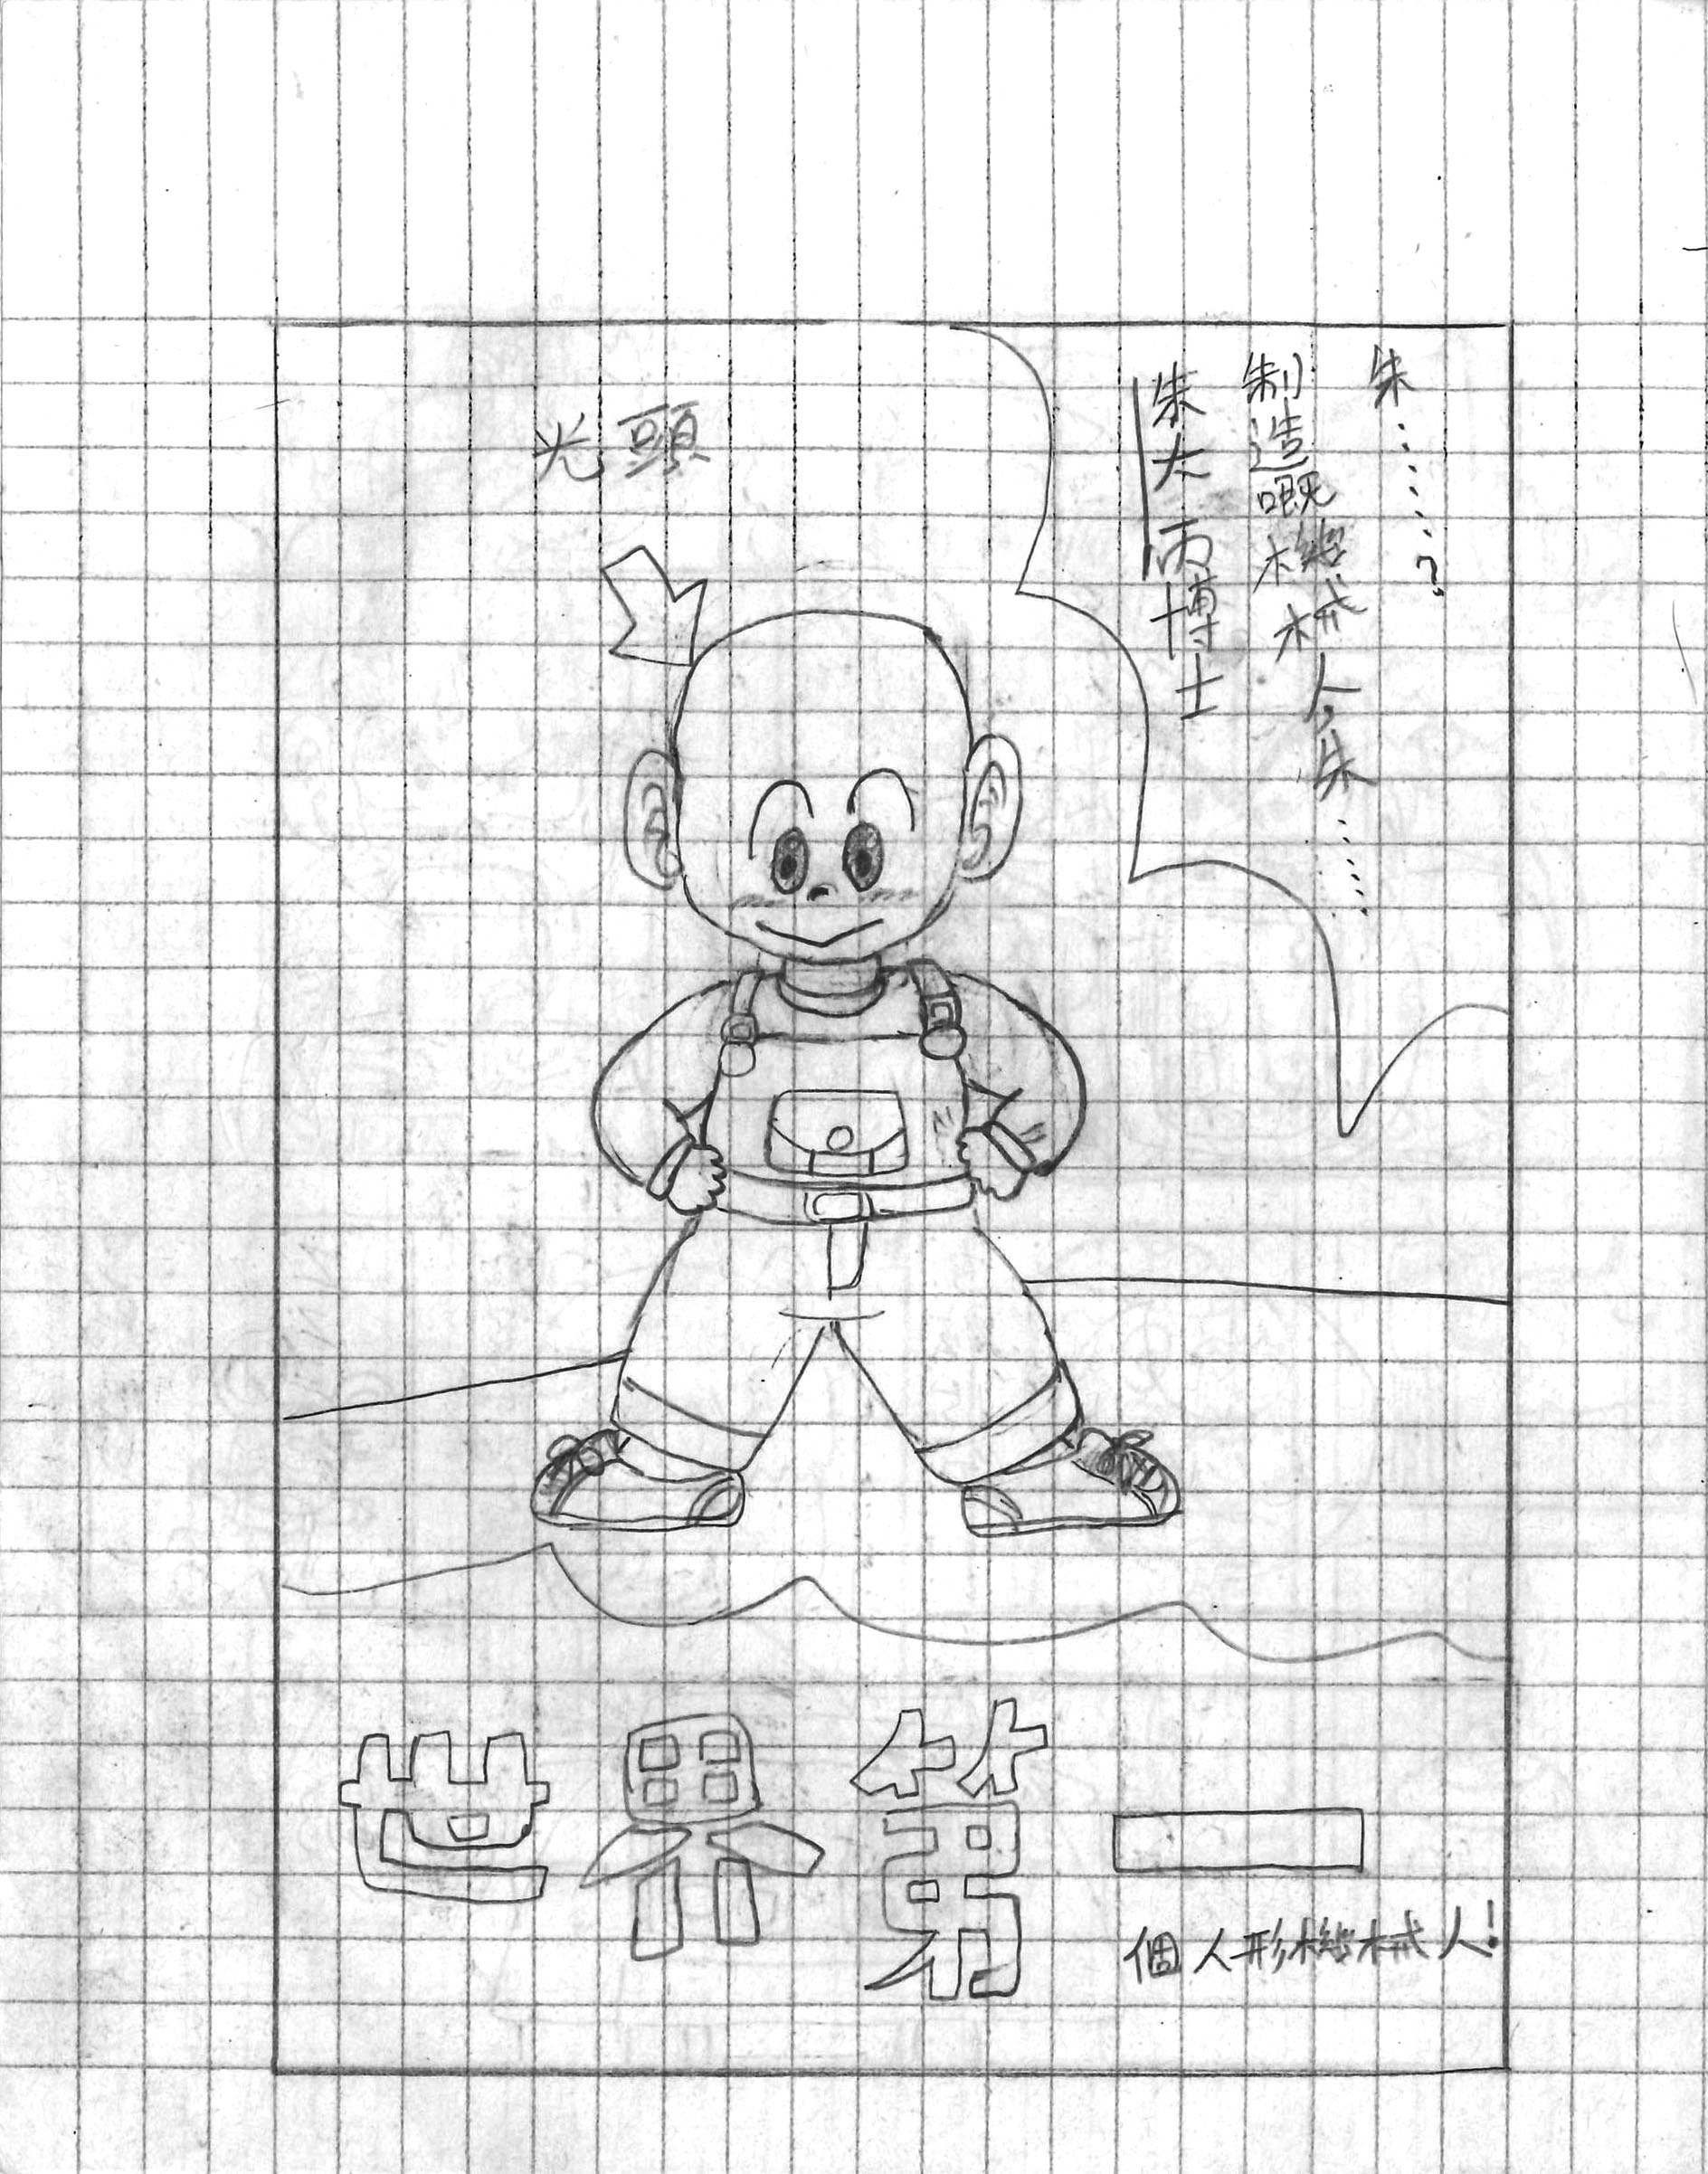 朱……?
制造嘅機械人,朱……
朱大丙博士
光頭
世界第一
個人形機械人!